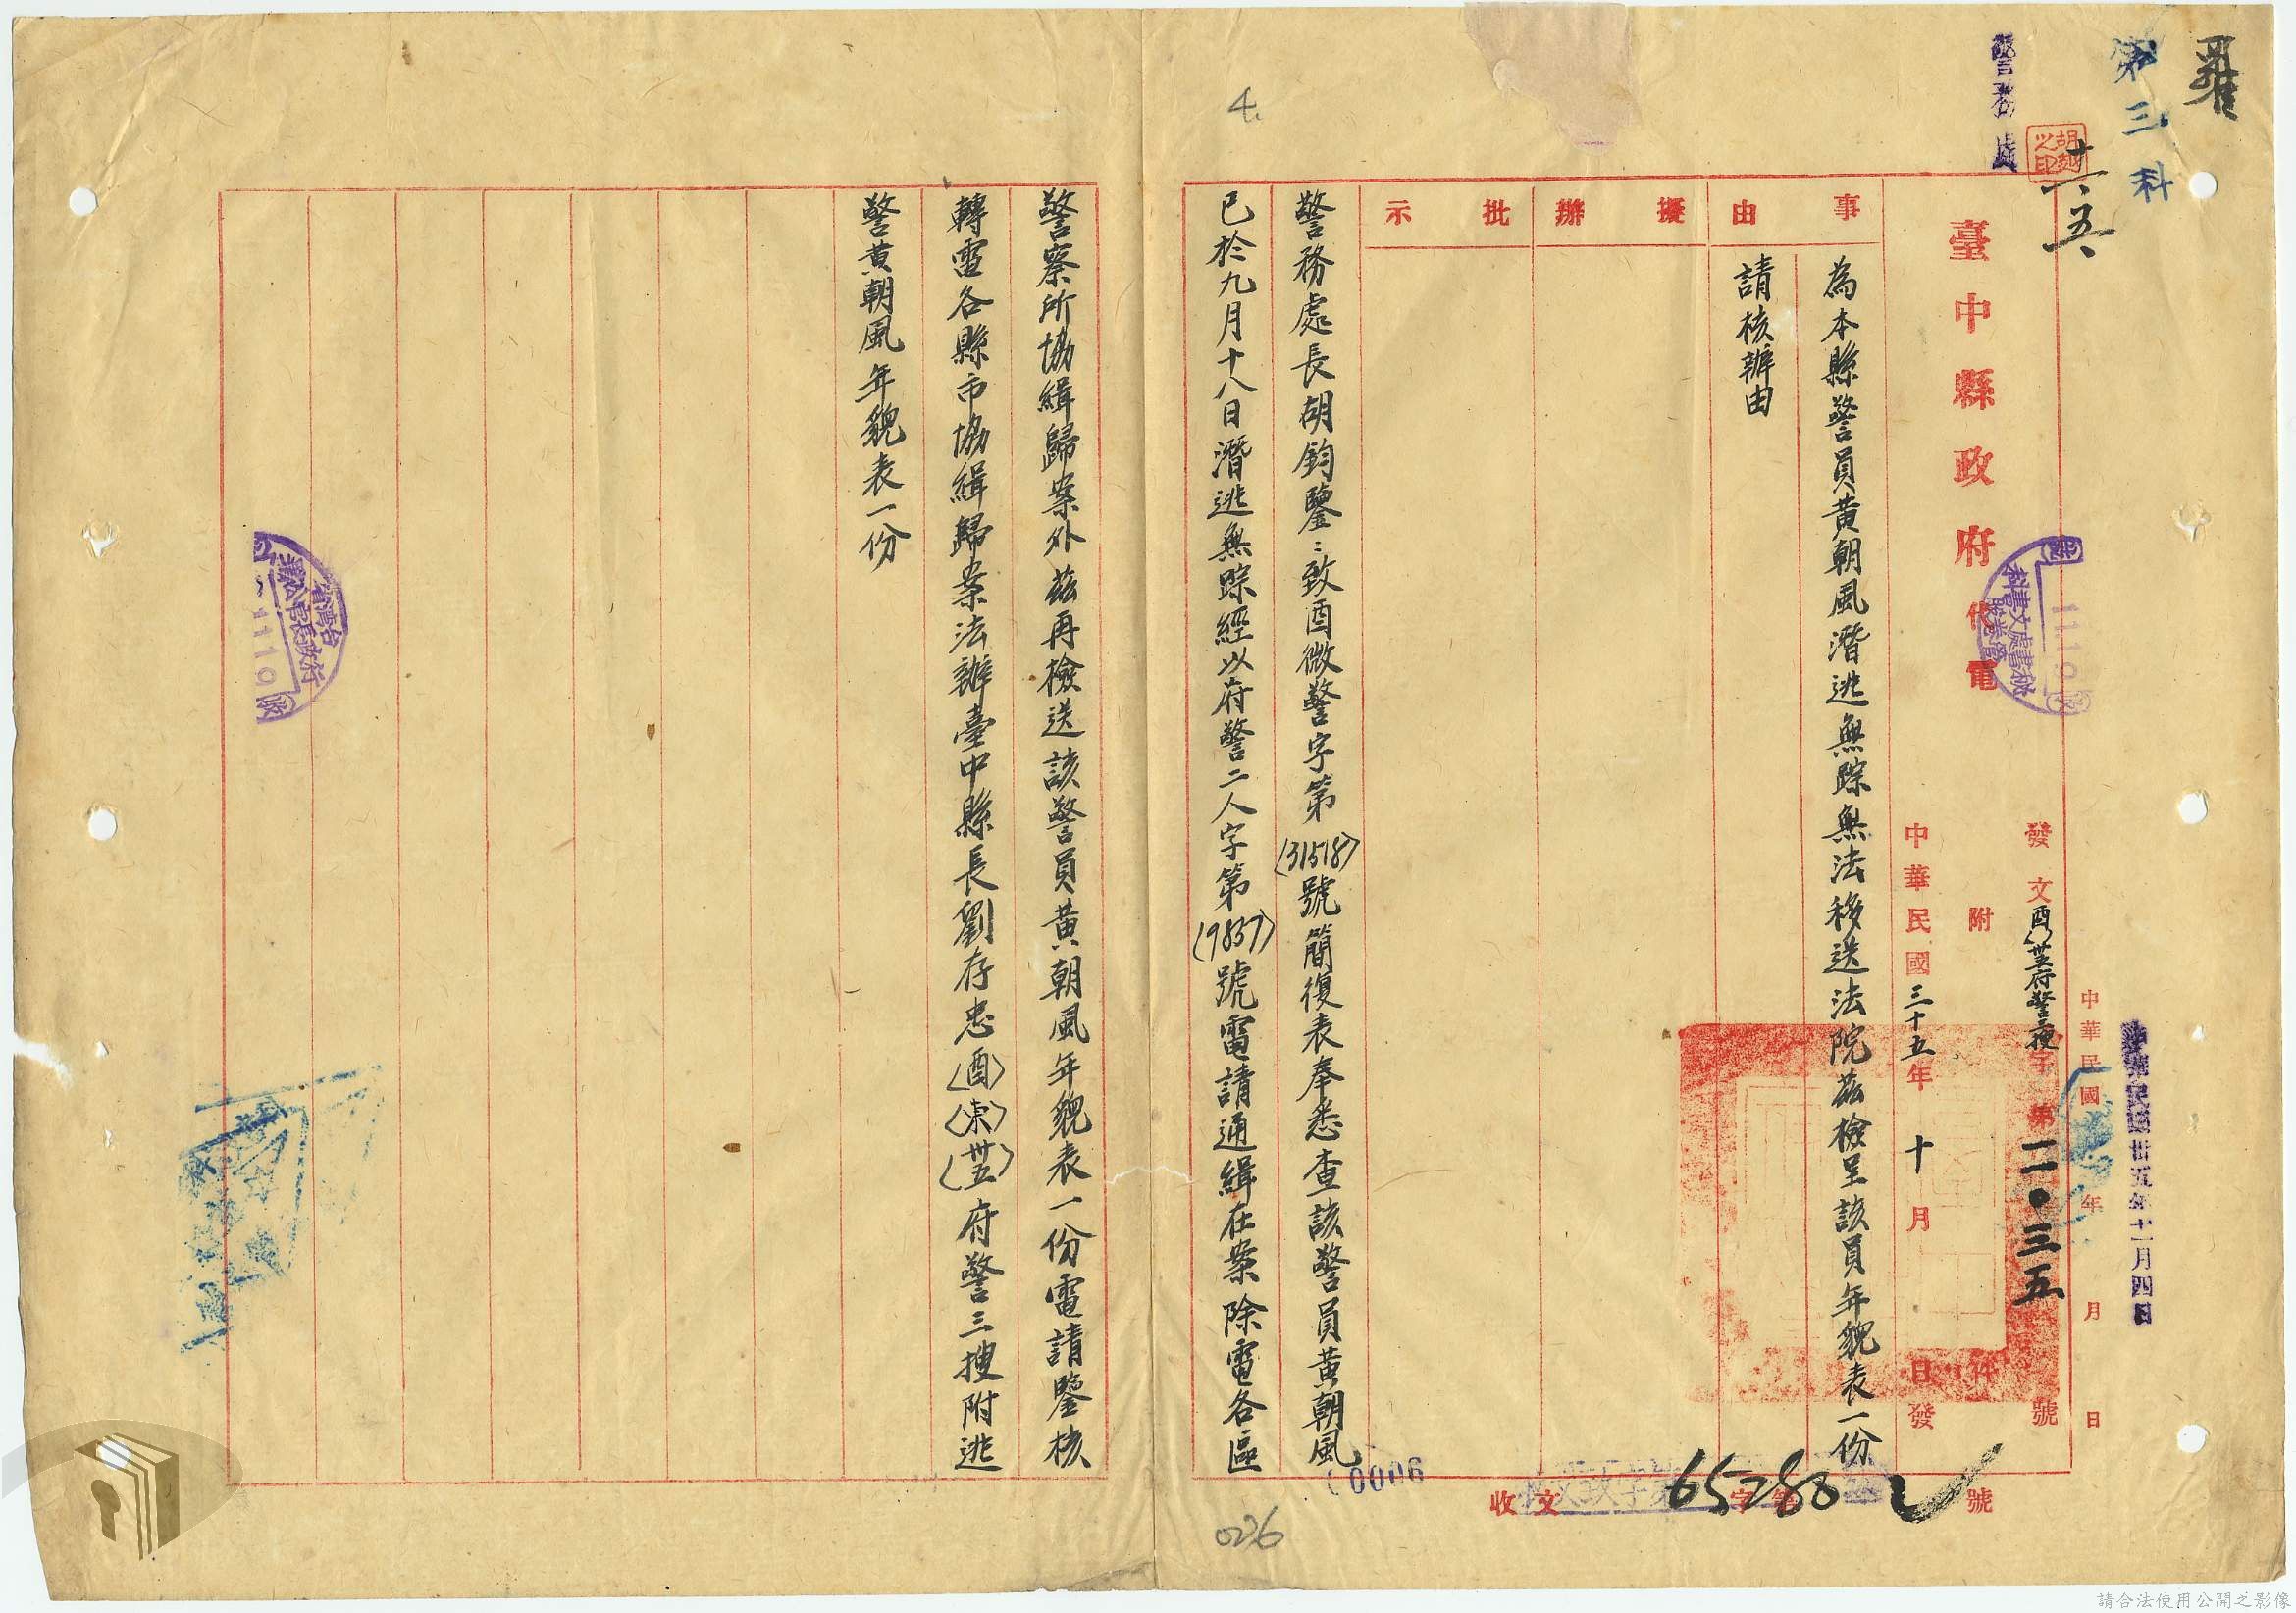 羅
第三科
警務處
胡越之印
十一、五、
中華民國卅五年十一月四日
中華民國 年 月 日
臺中縣政府代電
發文酉 卅五府警三搜字第二一〇三五號
附 件
中華民國三十五年十月 日發
事由
為本縣警員黃朝風潛逃無踪無法移送法院茲檢呈該員年貌表一份
請核辦由
擬辦
批示
警務處長胡鈞鑒：致酉微警字第(31518)號簡復表奉悉查該警員黃朝風
已於九月十八日潛逃無踪經以府警二人字第(9837)號電請通緝在案除電各區
警察所協緝歸案外茲再檢送該警員黃朝風年貌表一份電請鑒核
轉電各縣市協緝歸案法辦臺中縣長劉存忠(酉)(東)(卅五)府警三搜附逃
警黃朝風年貌表一份
收文 字第65288號
0006
4.
026
請合法使用公開之影像